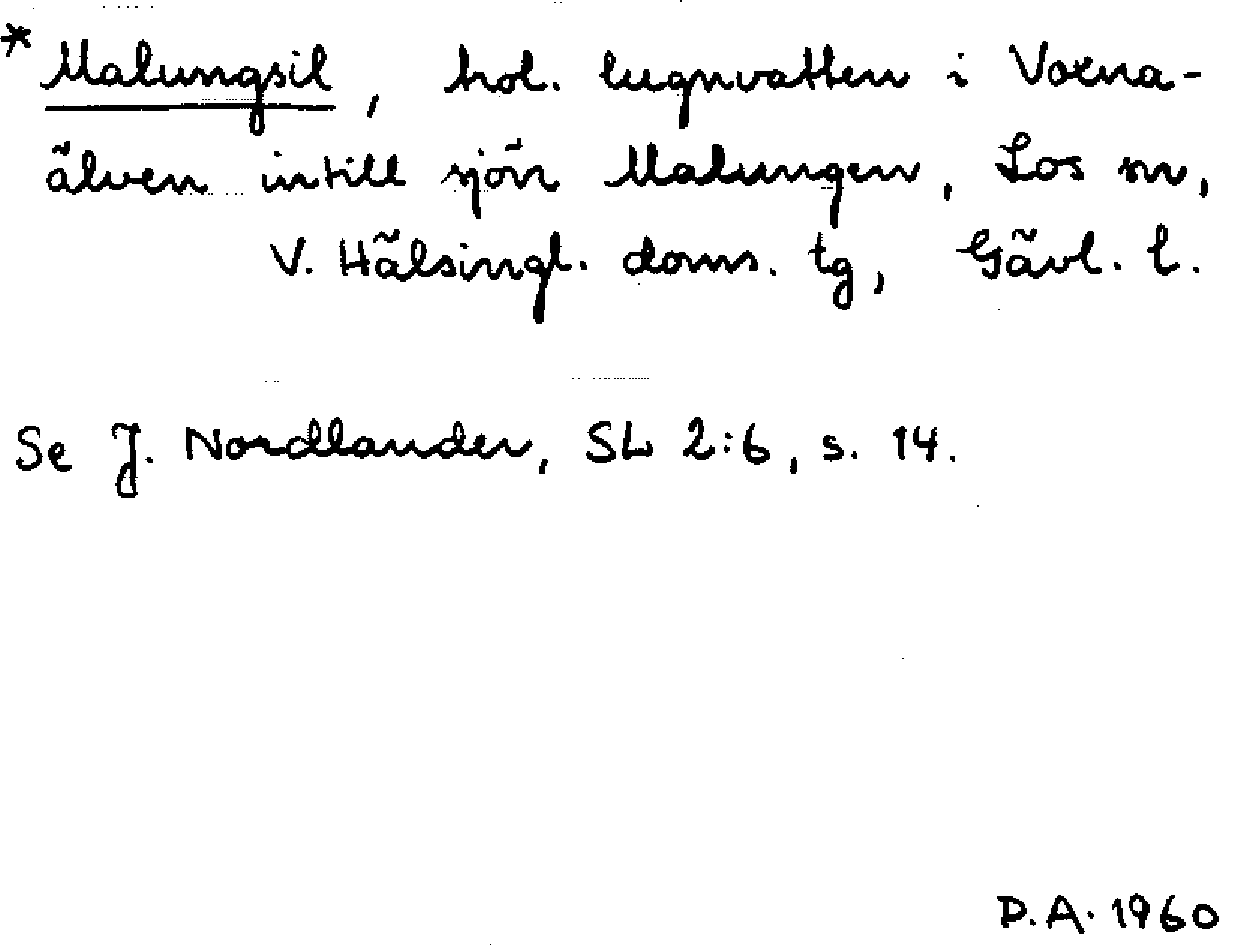 * Malungsil, trol. lugnvatten i Voxna-
älven intill sjön Malungen, Los sn,
V. Hälsingl. doms. tg, Gävl. l.
Se J. Nordlander, SL 2:6, s. 14.
D.A. 1960